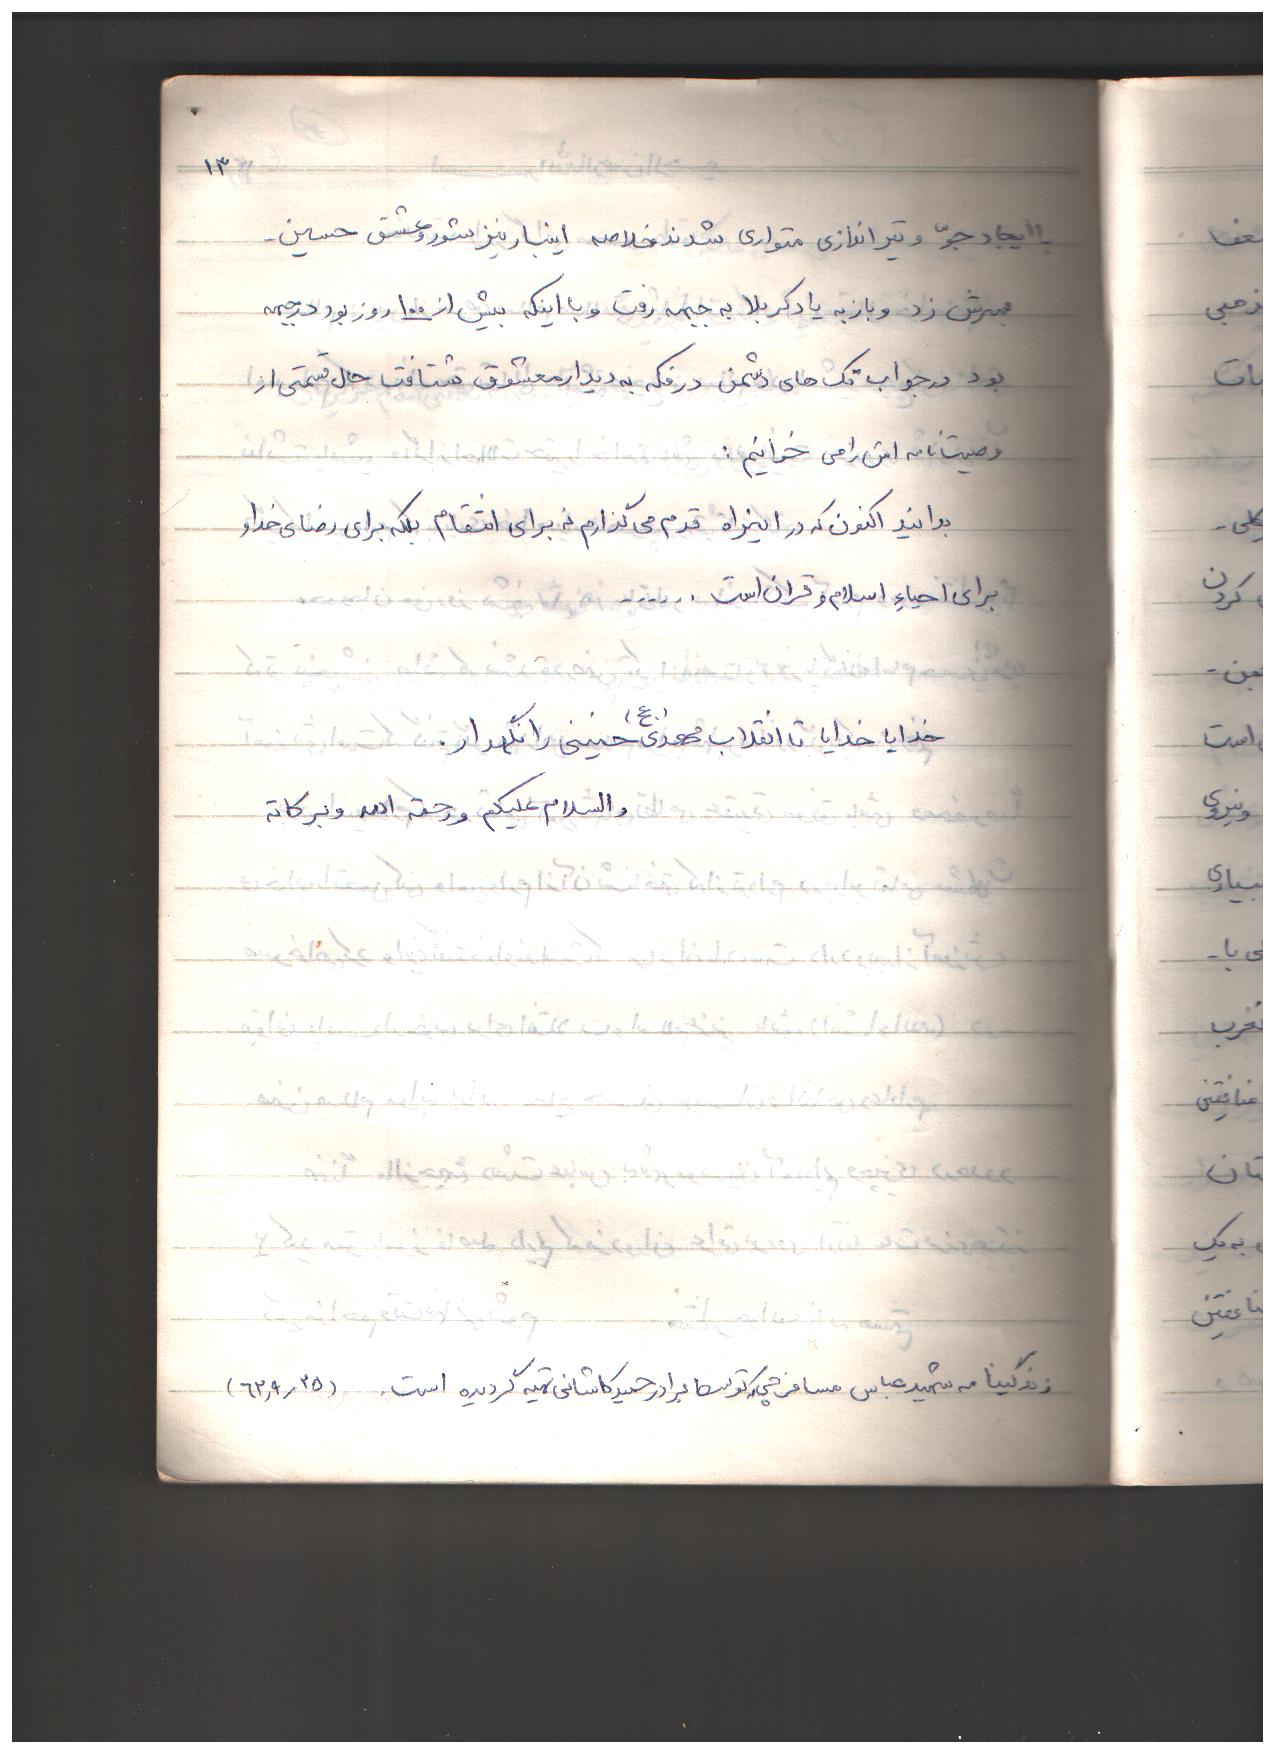 ۱۳
با ایجاد جوّ و تیراندازی متواری شدند خلاصه اینبار نیز شور و عشق حسین -
بسرش زد و باز به یاد کربلا به جبهه رفت و با اینکه بیش از ۱۰۰ روز بود در جبهه
بود در جواب تک های دشمن در فکه به دیدار معشوق شتافت حال قسمتی از
وصیتنامه اش را می خوانیم :
بدانید اکنون که در اینراه قدم می گذارم نه برای انتقام بلکه برای رضای خدا و
برای احیاء اسلام و قران است . .....
خدایا خدایا تا انقلاب مهدی (عج) خمینی را نگهدار .
والسلام علیکم و رحمة الله و برکاته
زندگینامه شهید عباس مسافر چی که توسط برادر حمید کاشانی تهیه گردیده است . (۶۲٫۹٫۲۵)
سعفا
ذهبی
یات
کلی -
کردن
مین -
است
و نیروی
بسیاری
ی با -
مخرب
منافقین
تان
به یک
منافقین